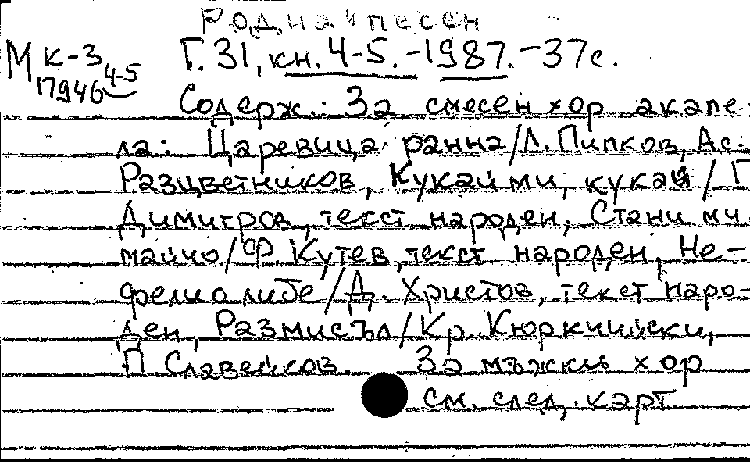 Родна песен
М К-3 Г. 31, кн. 4-5. -1987. -37с.
17946 4-5
Содерж.: За смесен хор акапе-
ла: Царевица ранна/Л. Пипков, Ас.
Разцветников, Кукай ми, кукай / Г
Димитров, текст народен, Стани ми,
майчо/Ф Кутев, текст народен, Не-
фелиа либе/Д. Христов, текст наро-
ден, Размисъл/Кр. Кюркчийски,
П Славейков. За мъжки хор
см. след. карт